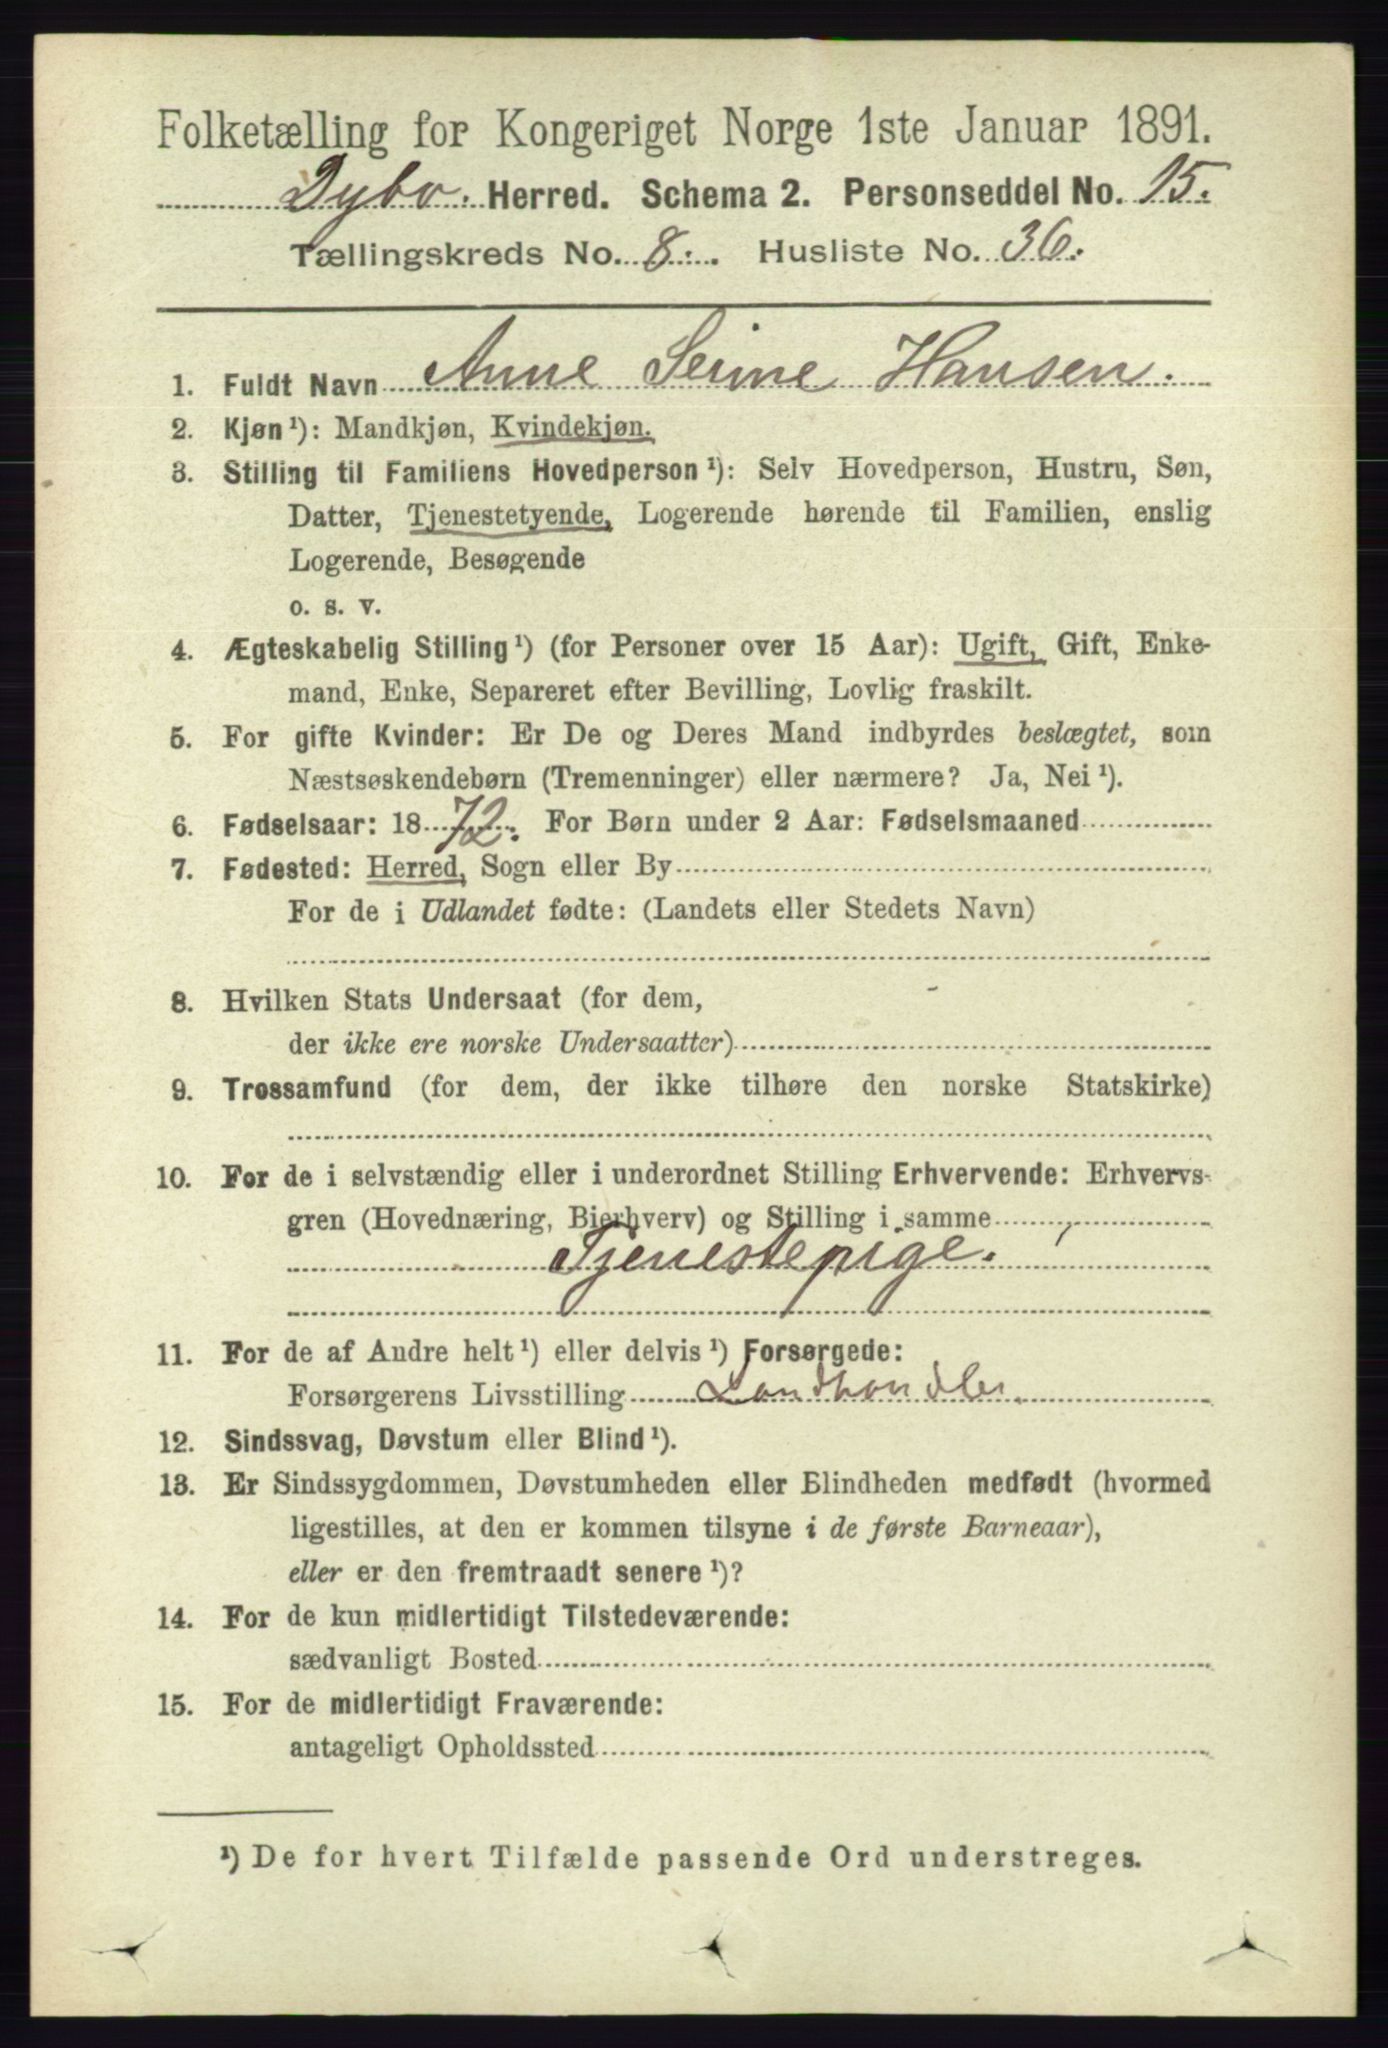 Folketælling for Kongeriget Norge 1ste Januar 1891.
Dybo. Herred. Schema 2. Personseddel No. 15.
Tællingskreds No. 8. Husliste No. 36.
1. Fuldt Navn Anne Serine Hansen.
2. Kjøn¹): Mandkjøn, Kvindekjøn.
3. Stilling til Familiens Hovedperson¹): Selv Hovedperson, Hustru, Søn,
Datter, Tjenestetyende, Logerende hørende til Familien, enslig
Logerende, Besøgende
o. s. v.
4. Ægteskabelig Stilling¹) (for Personer over 15 Aar): Ugift, Gift, Enke-
mand, Enke, Separeret efter Bevilling, Lovlig fraskilt.
5. For gifte Kvinder: Er De og Deres Mand indbyrdes beslægtet, som
Næstsøskendebørn (Tremenninger) eller nærmere? Ja, Nei¹).
6. Fødselsaar: 1872. For Børn under 2 Aar: Fødselsmaaned
7. Fødested: Herred, Sogn eller By
For de i Udlandet fødte: (Landets eller Stedets Navn)
8. Hvilken Stats Undersaat (for dem,
der ikke ere norske Undersaatter)
9. Trossamfund (for dem, der ikke tilhøre den norske Statskirke)
10. For de i selvstændig eller i underordnet Stilling Erhvervende: Erhvervs-
gren (Hovednæring, Bierhverv) og Stilling i samme
Tjenestepige.
11. For de af Andre helt¹) eller delvis¹) Forsørgede:
Forsørgerens Livsstilling Landhandler
12. Sindssvag, Døvstum eller Blind¹).
13. Er Sindssygdommen, Døvstumheden eller Blindheden medfødt (hvormed
ligestilles, at den er kommen tilsyne i de første Barneaar),
eller er den fremtraadt senere¹)?
14. For de kun midlertidigt Tilstedeværende:
sædvanligt Bosted
15. For de midlertidigt Fraværende:
antageligt Opholdssted
¹) De for hvert Tilfælde passende Ord understreges.